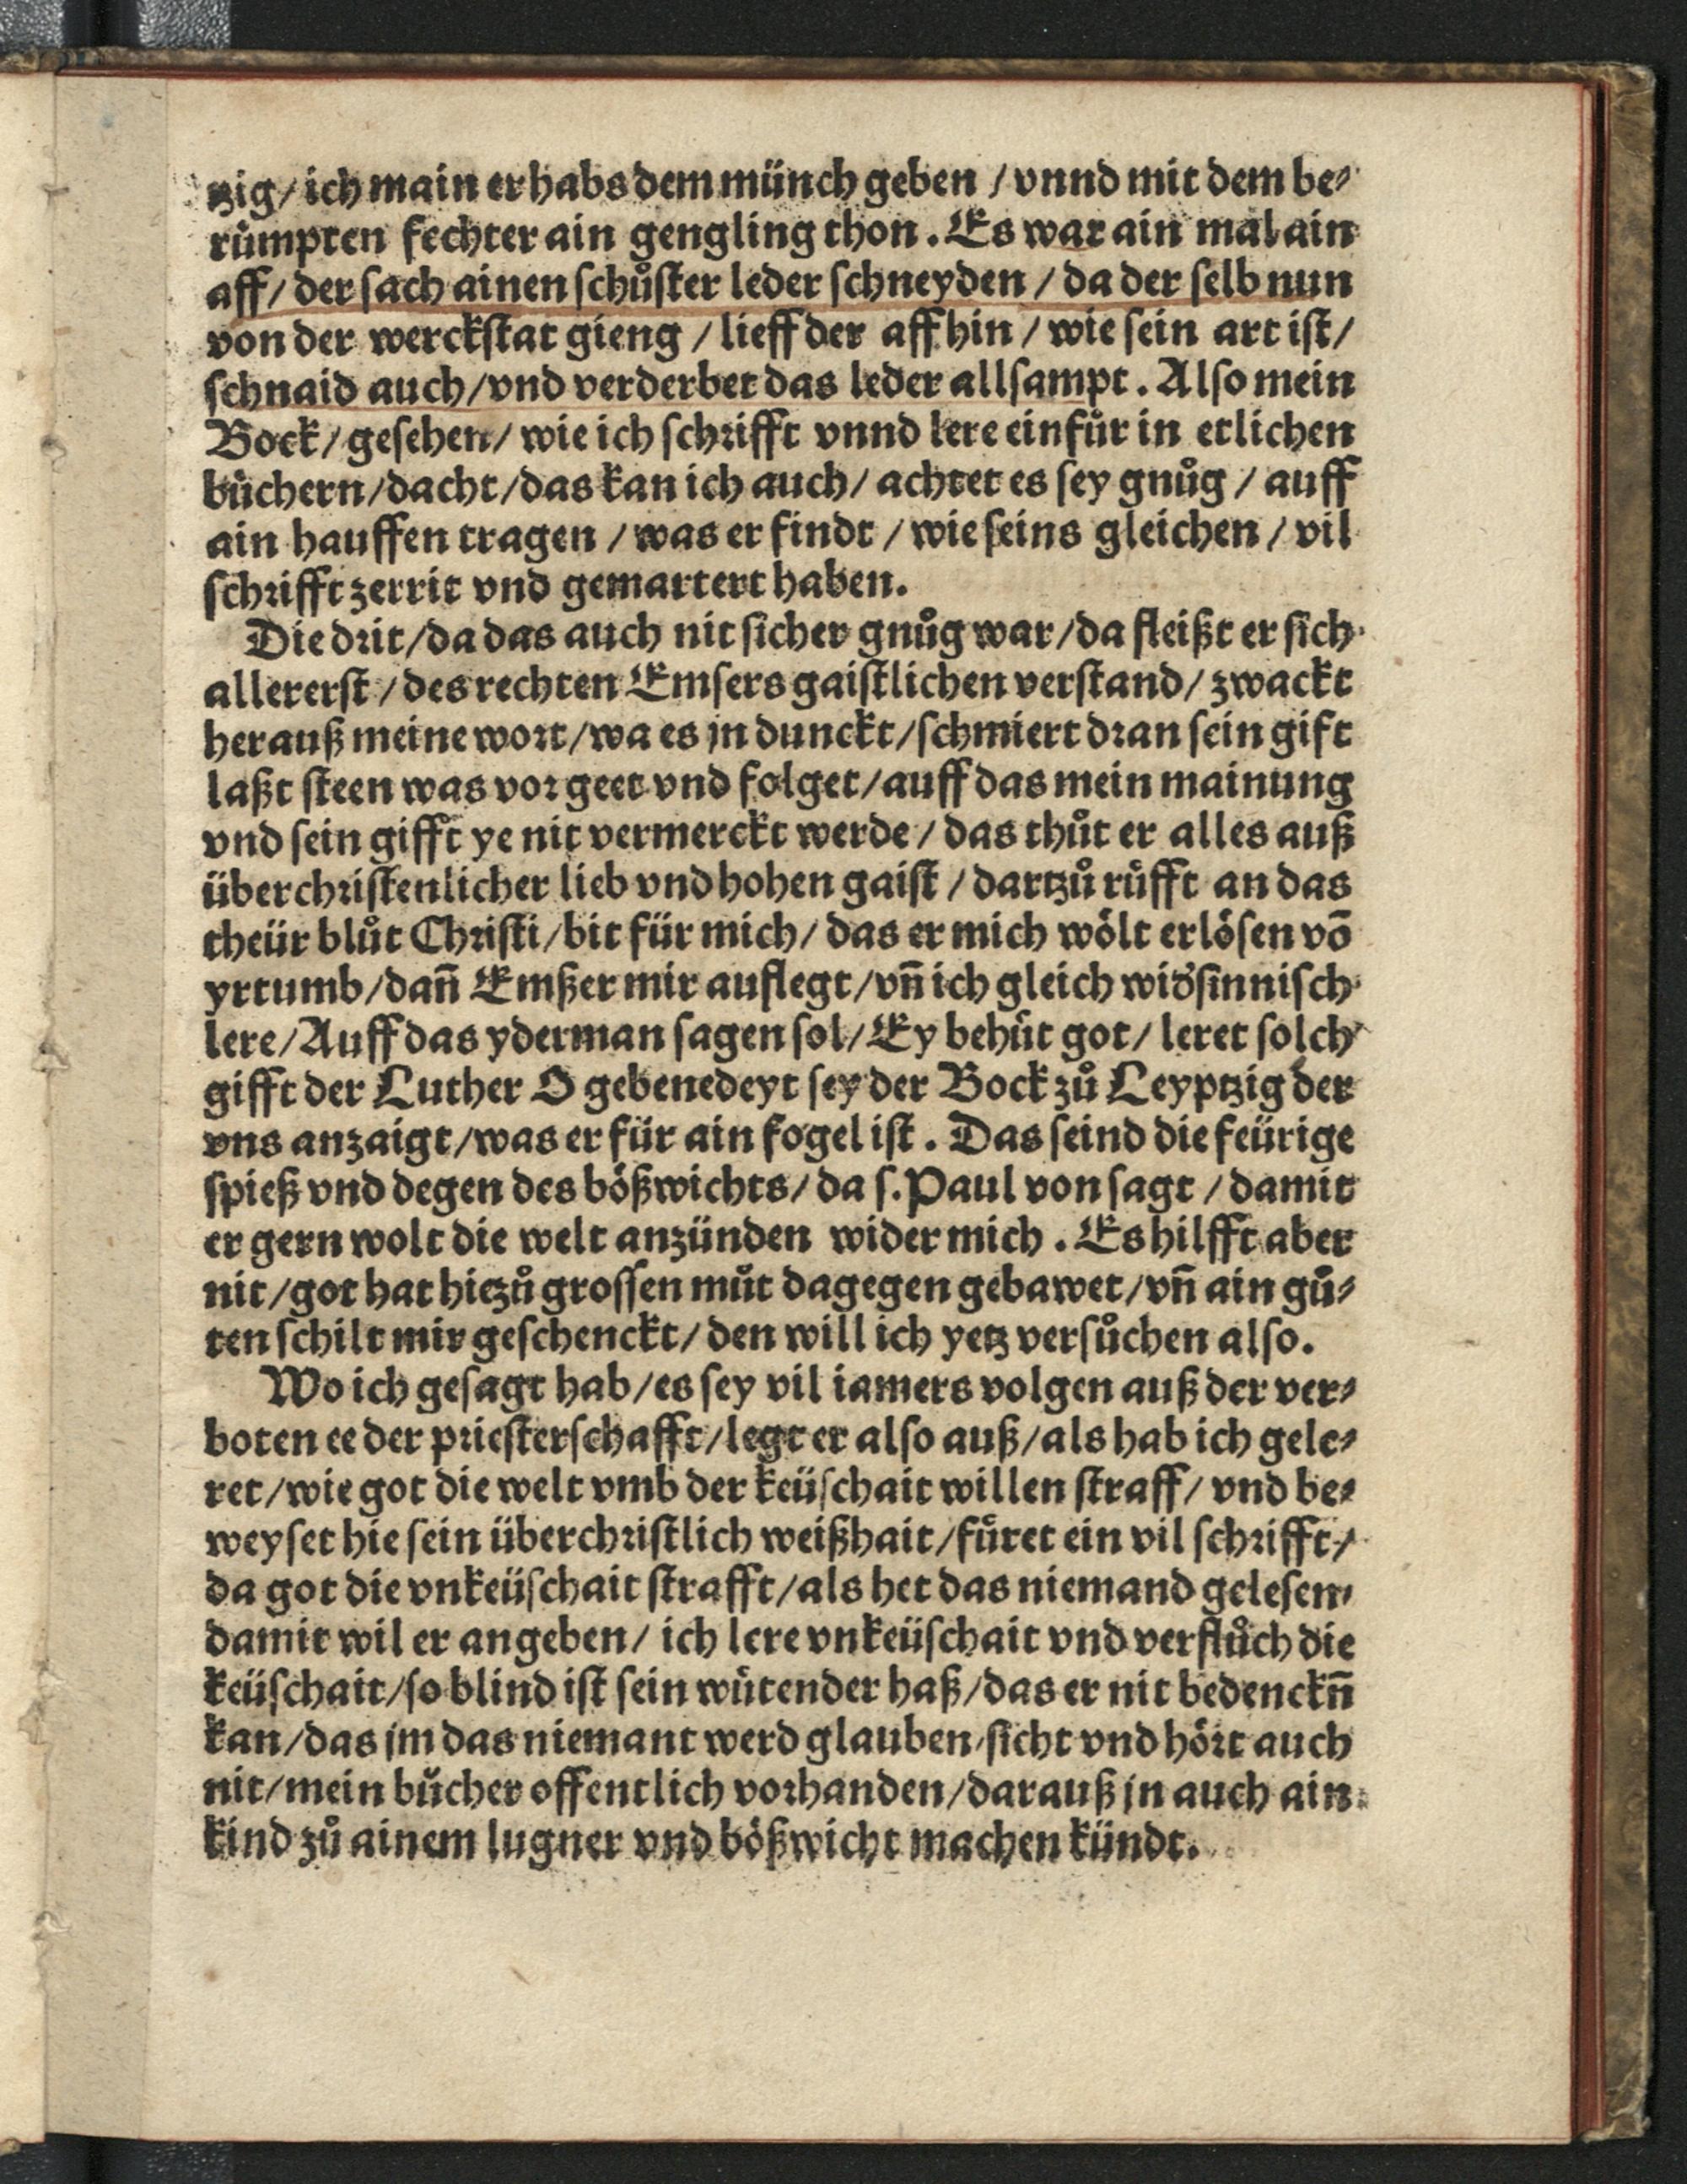 tzig/ ich main er habs dem münch geben / vnnd mit dem be⸗
růmpten fechter ain gengling thon. Es war ain mal ain
aff/ der sach ainen schůster leder schneyden / da der selb nun
von der werckstat gieng / lieff der aff hin / wie sein art ist/
schnaid auch/vnd verderbet das leder allsampt. Also mein
Bock/ gesehen/ wie ich schrifft vnnd lere einfůr in etlichen
bůchern/dacht/das kan ich auch/ achtet es sey gnůg / auff
ain hauffen tragen / was er findt / wie seins gleichen / vil
schrifft zerrit vnd gemartert haben.
Die drit/da das auch nit sicher gnůg war/da fleißt er sich
allererst / des rechten Emsers gaistlichen verstand/ zwackt
herauß meine wort/wa es jn dunckt/schmiert dran sein gift
laßt steen was vor geet vnd folget/auff das mein mainung
vnd sein gifft ye nit vermerckt werde / das thůt er alles auß
überchristenlicher lieb vnd hohen gaist / dartzů růfft an das
theür blůt Christi/bit für mich/ das er mich wölt erlösen võ
yrtumb/dañ Emßer mir auflegt/vñ ich gleich widsinnisch
lere/Auff das yderman sagen sol/Ey behůt got/ leret solch
gifft der Luther O gebenedeyt sey der Bock zů Leyptzig der
vns anzaigt/was er für ain fogel ist. Das seind die feürige
spieß vnd degen des bößwichts/ da s. Paul von sagt / damit
er gern wolt die welt anzünden wider mich . Es hilfft aber
nit/got hat hietzů grossen můt dagegen gebawet/vñ ain gů⸗
ten schilt mir geschenckt/ den will ich yetz versůchen also.
Wo ich gesagt hab/es sey vil iamers volgen auß der ver⸗
boten ee der priesterschafft/legt er also auß/als hab ich gele⸗
ret/wie got die welt vmb der keüschait willen straff/ vnd be⸗
weyset hie sein überchristlich weißhait/fůret ein vil schrifft/
da got die vnkeüschait strafft/als het das niemand gelesen/
damit wil er angeben/ ich lere vnkeüschait vnd verflůch die
keüschait/so blind ist sein wůtender haß/das er nit bedenckñ
kan/das jm das niemant werd glauben/sicht vnd hört auch
nit/mein bůcher offentlich vorhanden/darauß jn auch ain
kind zů ainem lugner vnd bößwicht machen kündt.